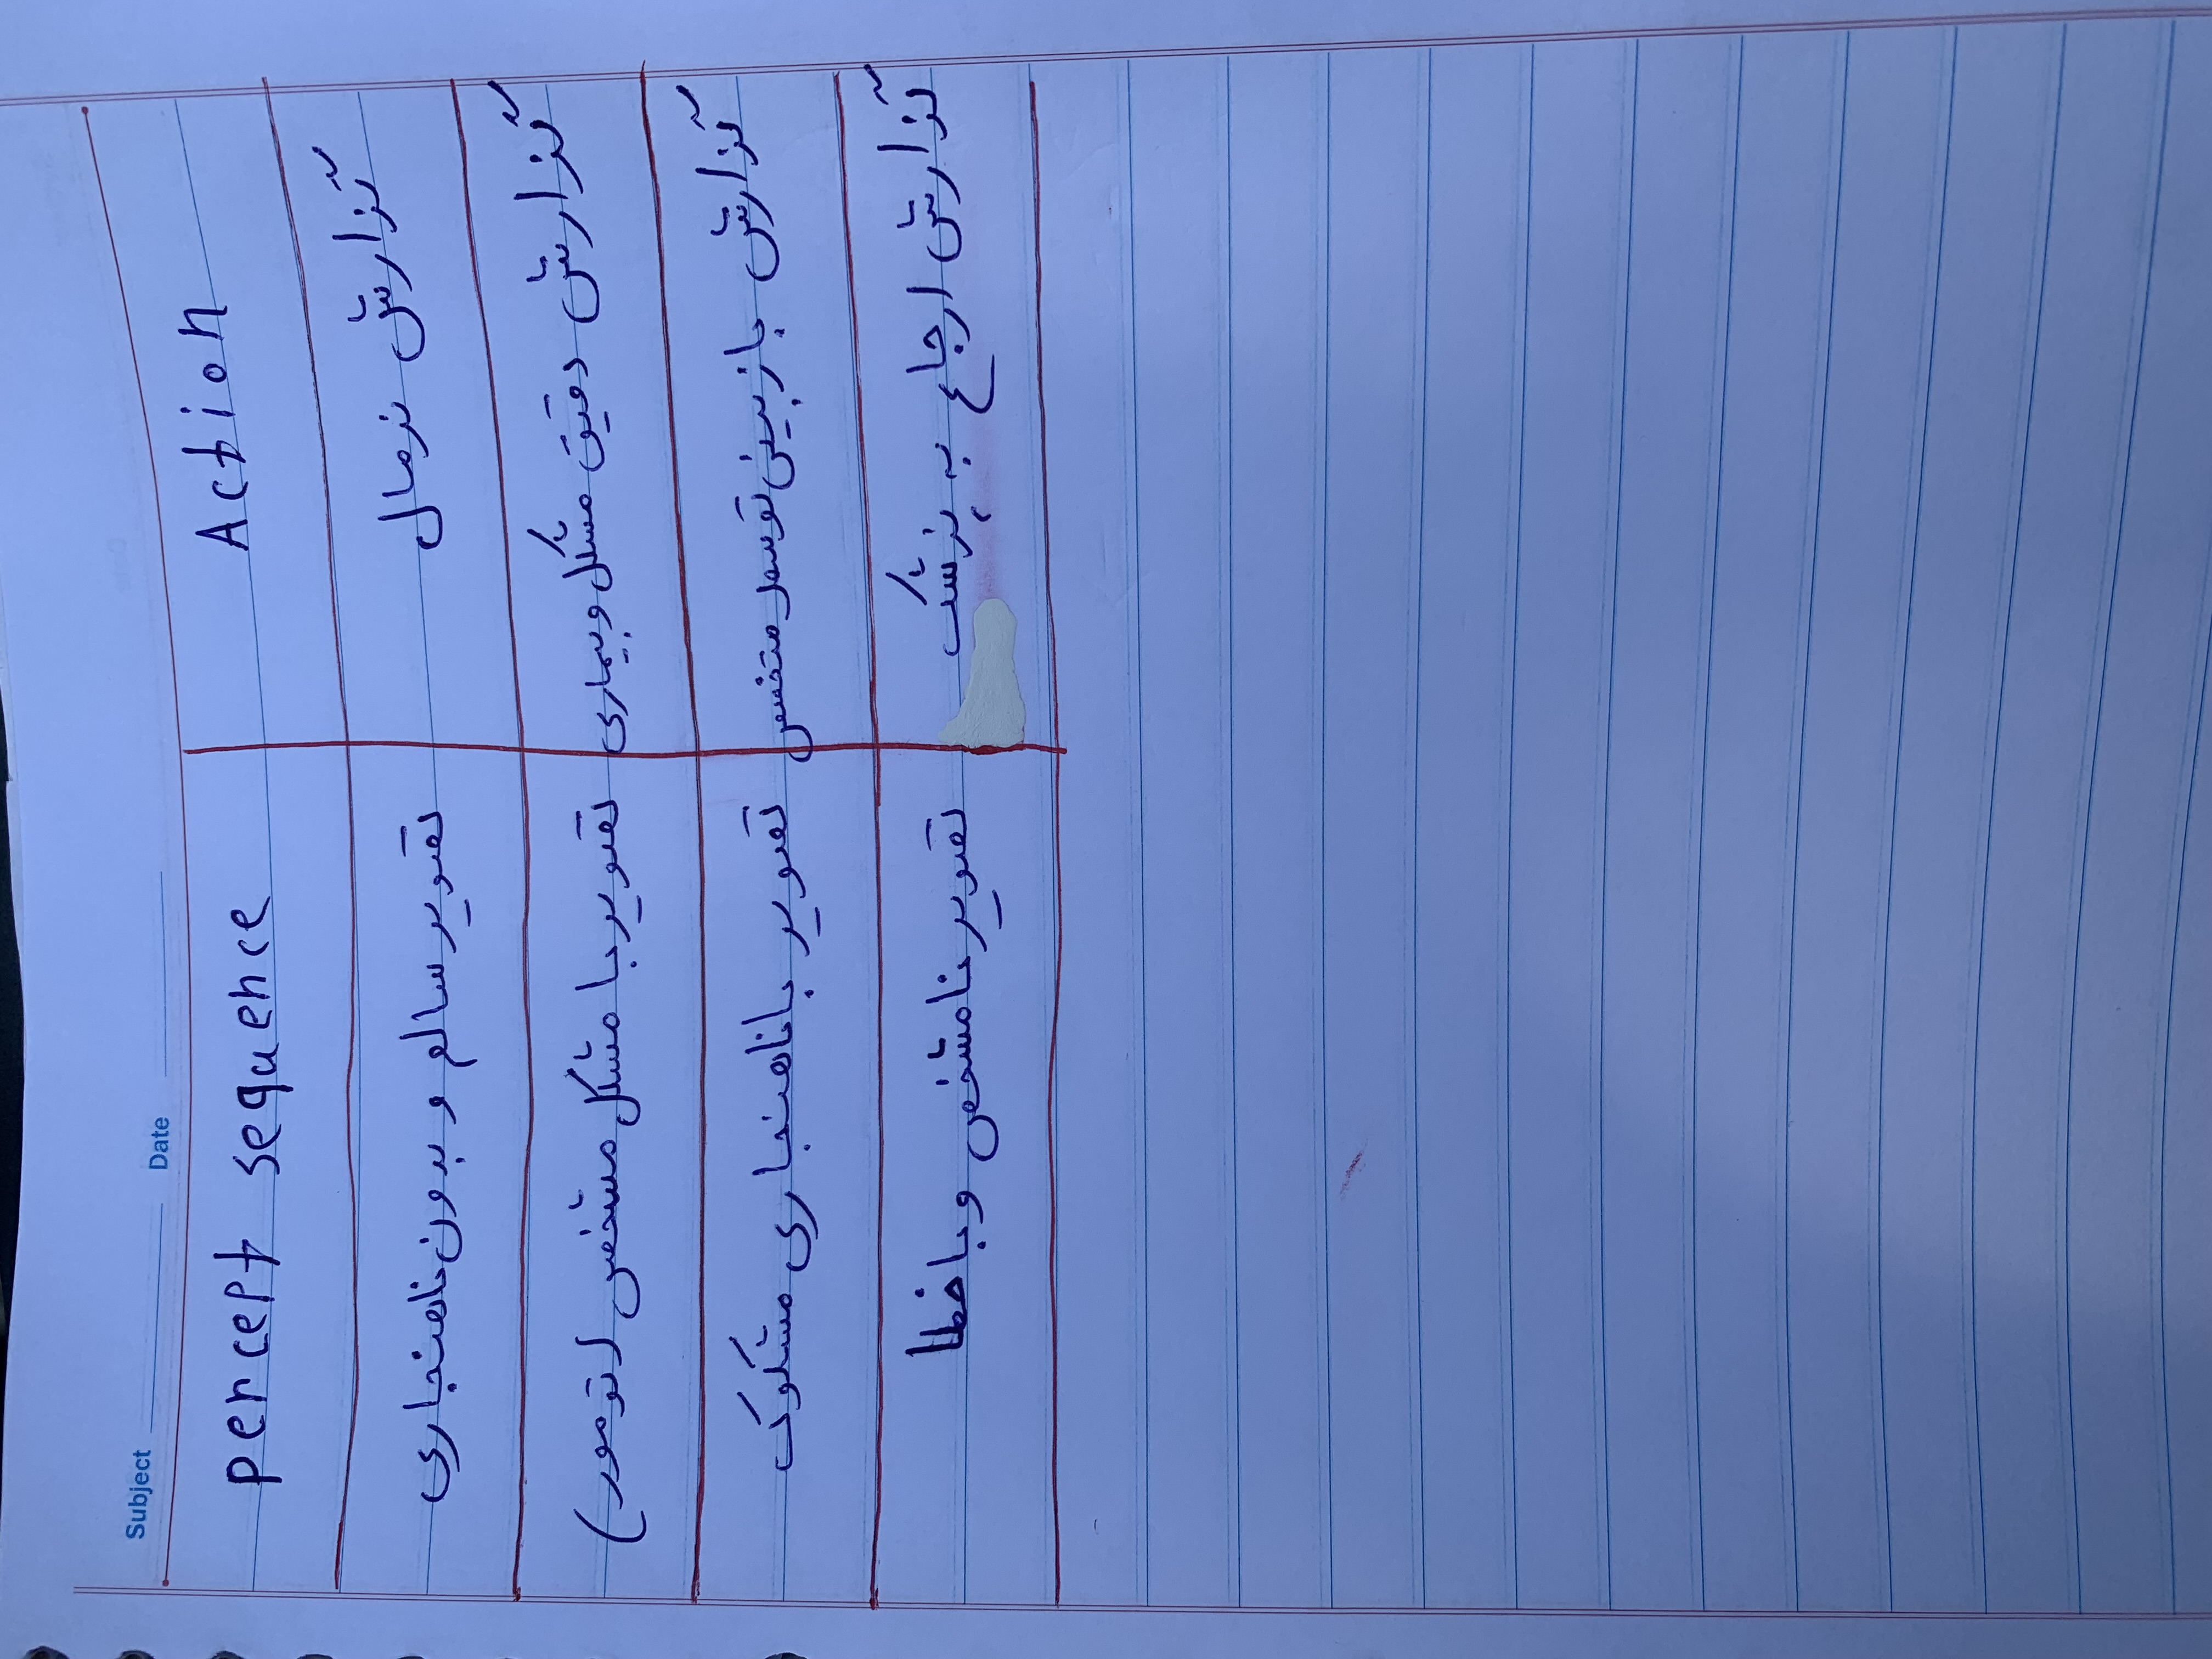 Subject Date
percept sequence Action
تصویر سالم و بدون ناهنجاری گزارش نرمال
تصویر با مشکل مشخص (تومور) گزارش دقیق مشکل و بیماری
تصویر با ناهنجاری مشکوک گزارش بازبینی توسط متخصص
تصویر نامشخص و با خطا گزارش ارجاع به پزشک